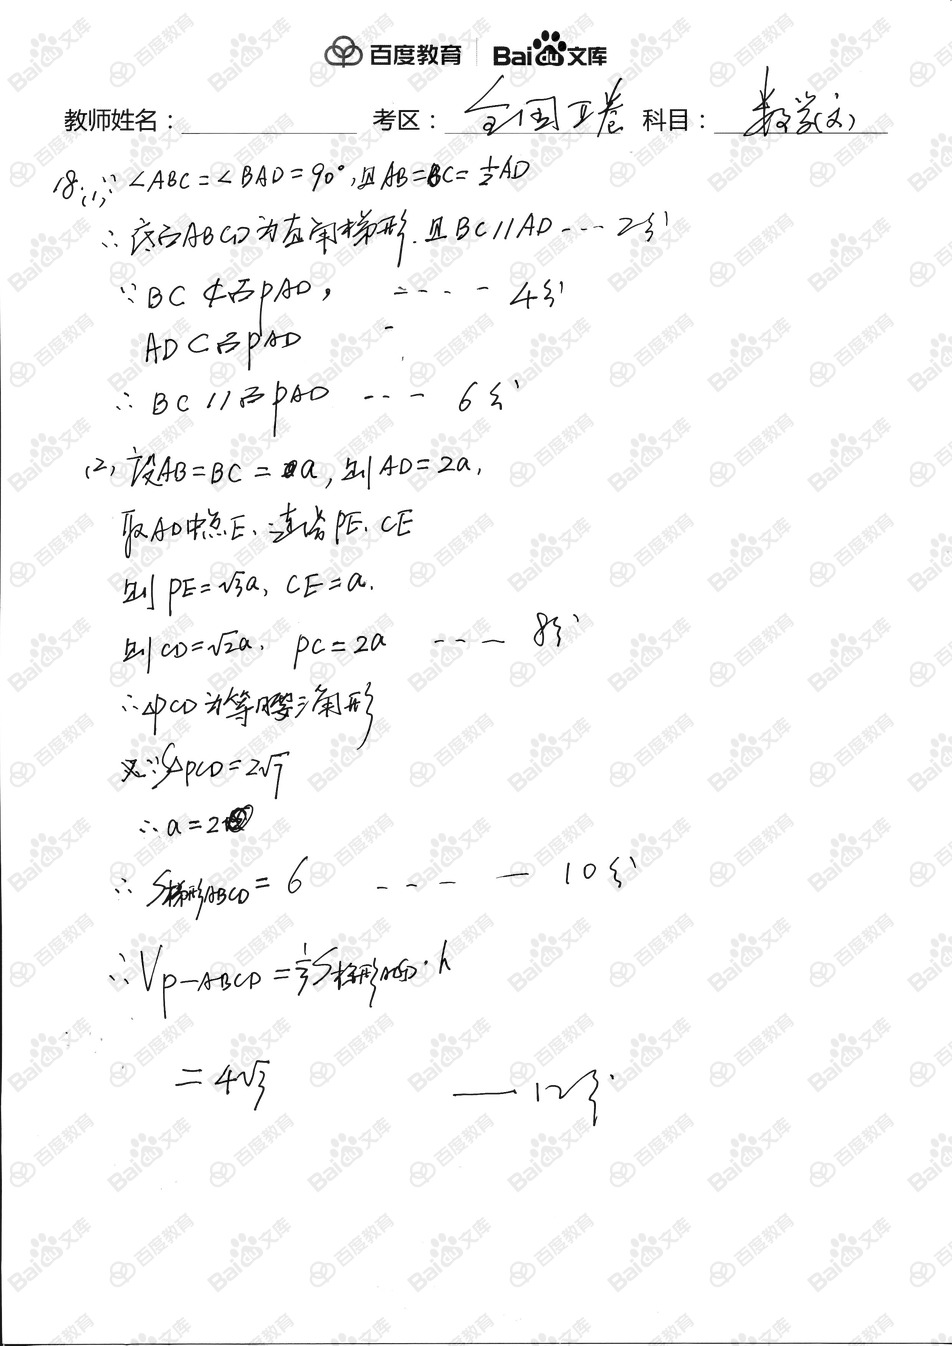 百度教育 Bai du 文库
教师姓名： 考区：全国Ⅱ卷 科目：数学(文)
18.(1)∵∠ABC=∠BAD=90°,且AB=BC=½AD
∴底面ABCD为直角梯形.且BC//AD ---- 2分
∵BC⊄面PAD, ----- 4分
AD⊂面PAD
∴BC//面PAD --- 6分
(2)设AB=BC=a,则AD=2a,
取AD中点E.连接PE.CE
则PE=√3a, CE=a.
则CD=√2a. PC=2a --- 8分
∴△PCD为等腰三角形
又∵S△PCD=2√7
∴a=2
∴S梯形ABCD=6 ---- 10分
∴V P-ABCD=⅓S梯形ABCD·h
=4√3 — 12分